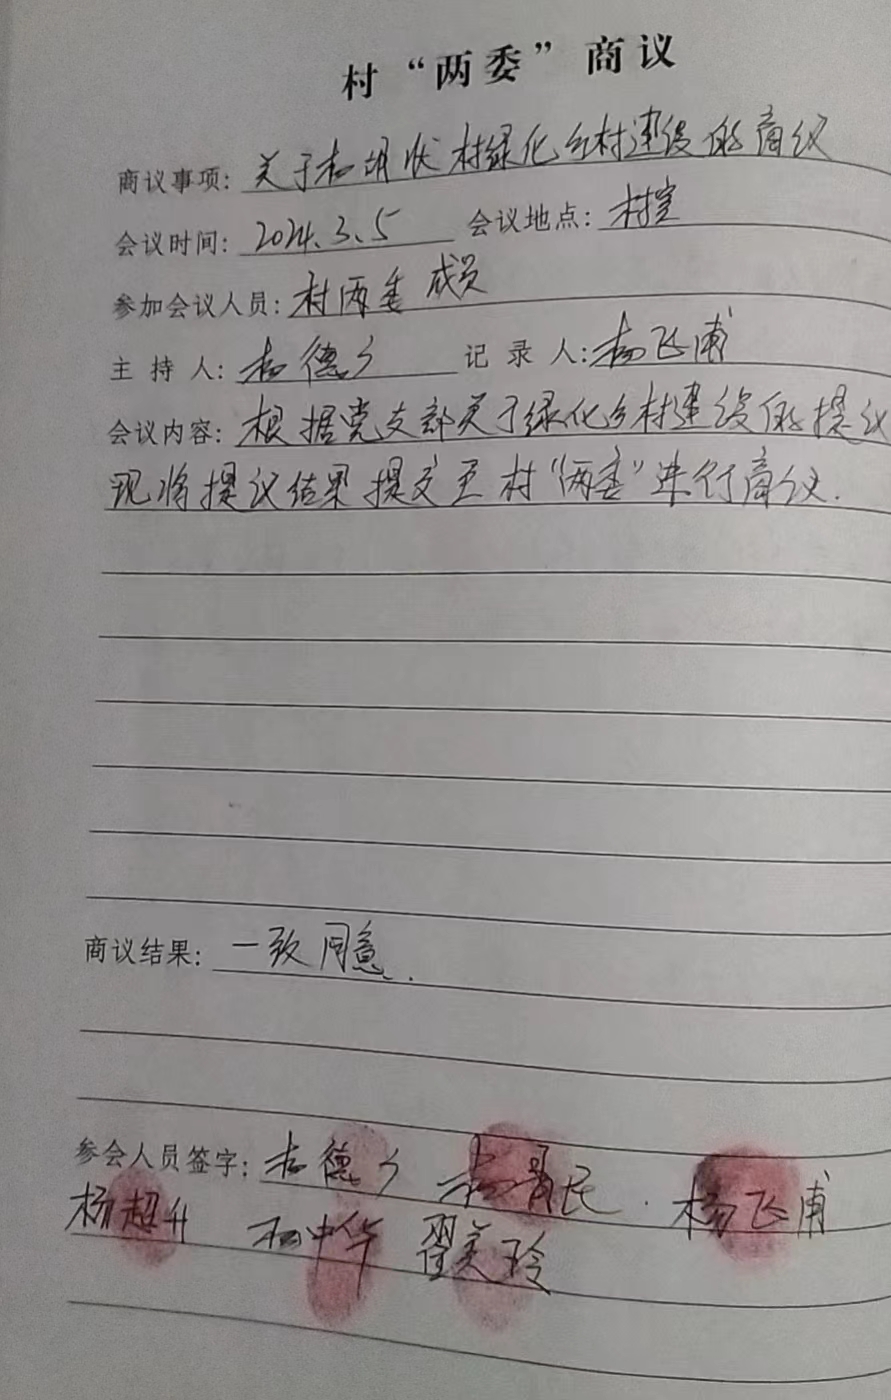 村“两委”商议
商议事项：关于杨胡状村绿化乡村建设的商议
会议时间：2024.3.5 会议地点：村室
参加会议人员：村两委成员
主持人：杨德 记录人：杨飞甫
会议内容：根据党支部关于绿化乡村建设的提议
现将提议结果提交至村“两委”进行商议.
商议结果：一致同意.
参会人员签字：杨德 杨 民. 杨飞甫
杨超升 杨中华 翟美玲